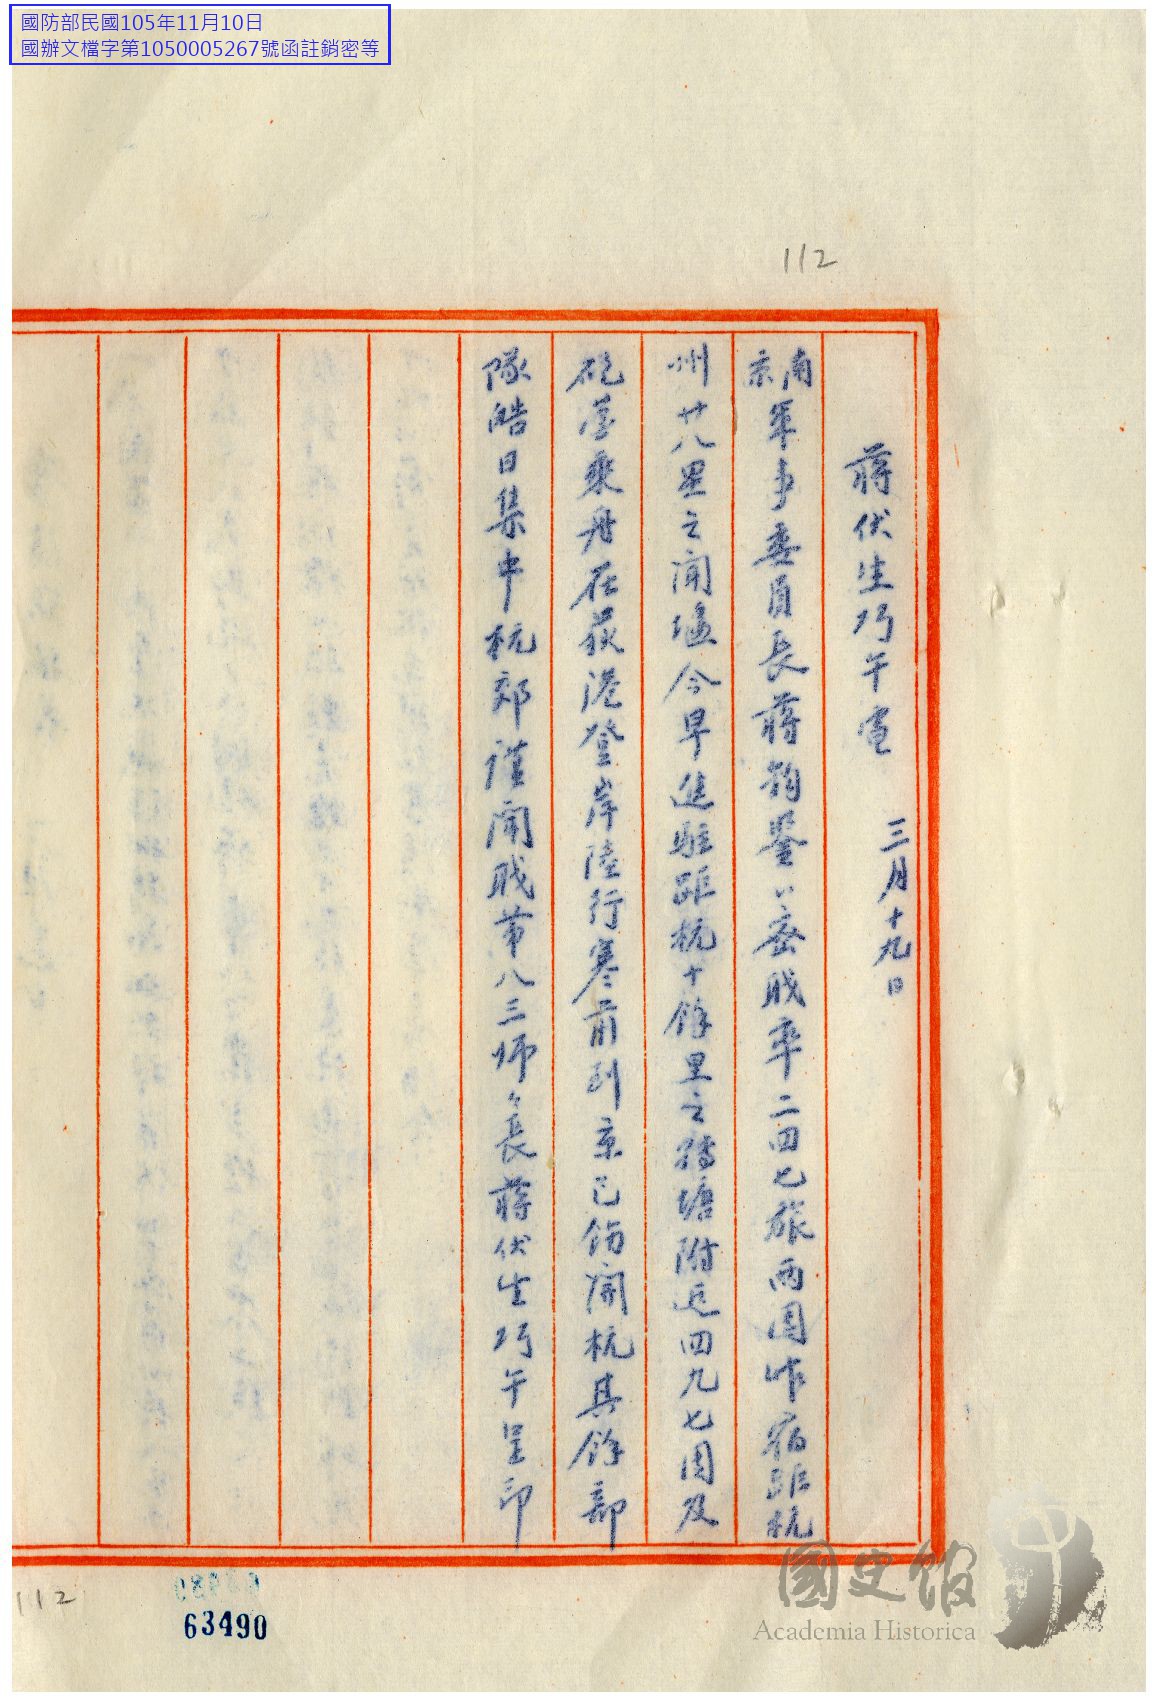 國防部民國105年11月10日
國辦文檔字第1050005267號函註銷密等
112
蔣伏生巧午電 三月十九日
南京軍事委員長蔣鈞鑒：密職率二四七旅兩團昨宿距杭
州廿八里之閑埯今早進駐距杭十餘里之轉塘附近四九七團及
砲營乘舟在荻港登岸陸行寒前到京已飭開杭其餘部
隊皓日集中杭郊謹聞職蒂八三師々長蔣伏生巧午呈印
112
63490
國史館
Academia Historica